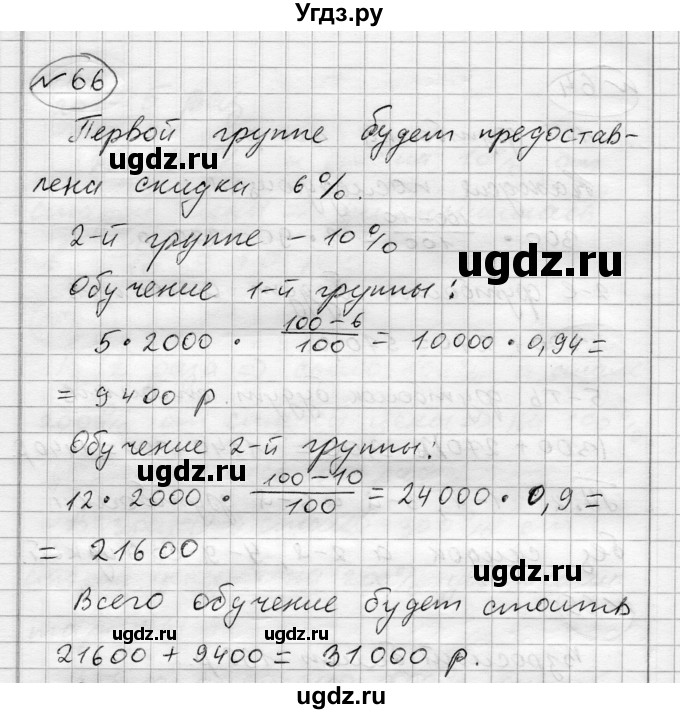 Угдз.ру
№66
Первой группе будет предостав-
ugdz.ru ugdz.ru
лена скидка 6%.
2-й группе – 10%
ugdz.ru
Обучение 1-й группы:
5 · 2000 · (100 – 6)/100 = 10000 · 0,94 =
= 9400 р.
Обучение 2-й группы:
ugdz.ru ugdz.ru
12 · 2000 · (100 – 10)/100 = 24000 · 0,9 =
= 21600
Всего обучение будет стоить
ugdz.ru ugdz.ru
21600 + 9400 = 31000 р.
ugdz.ru